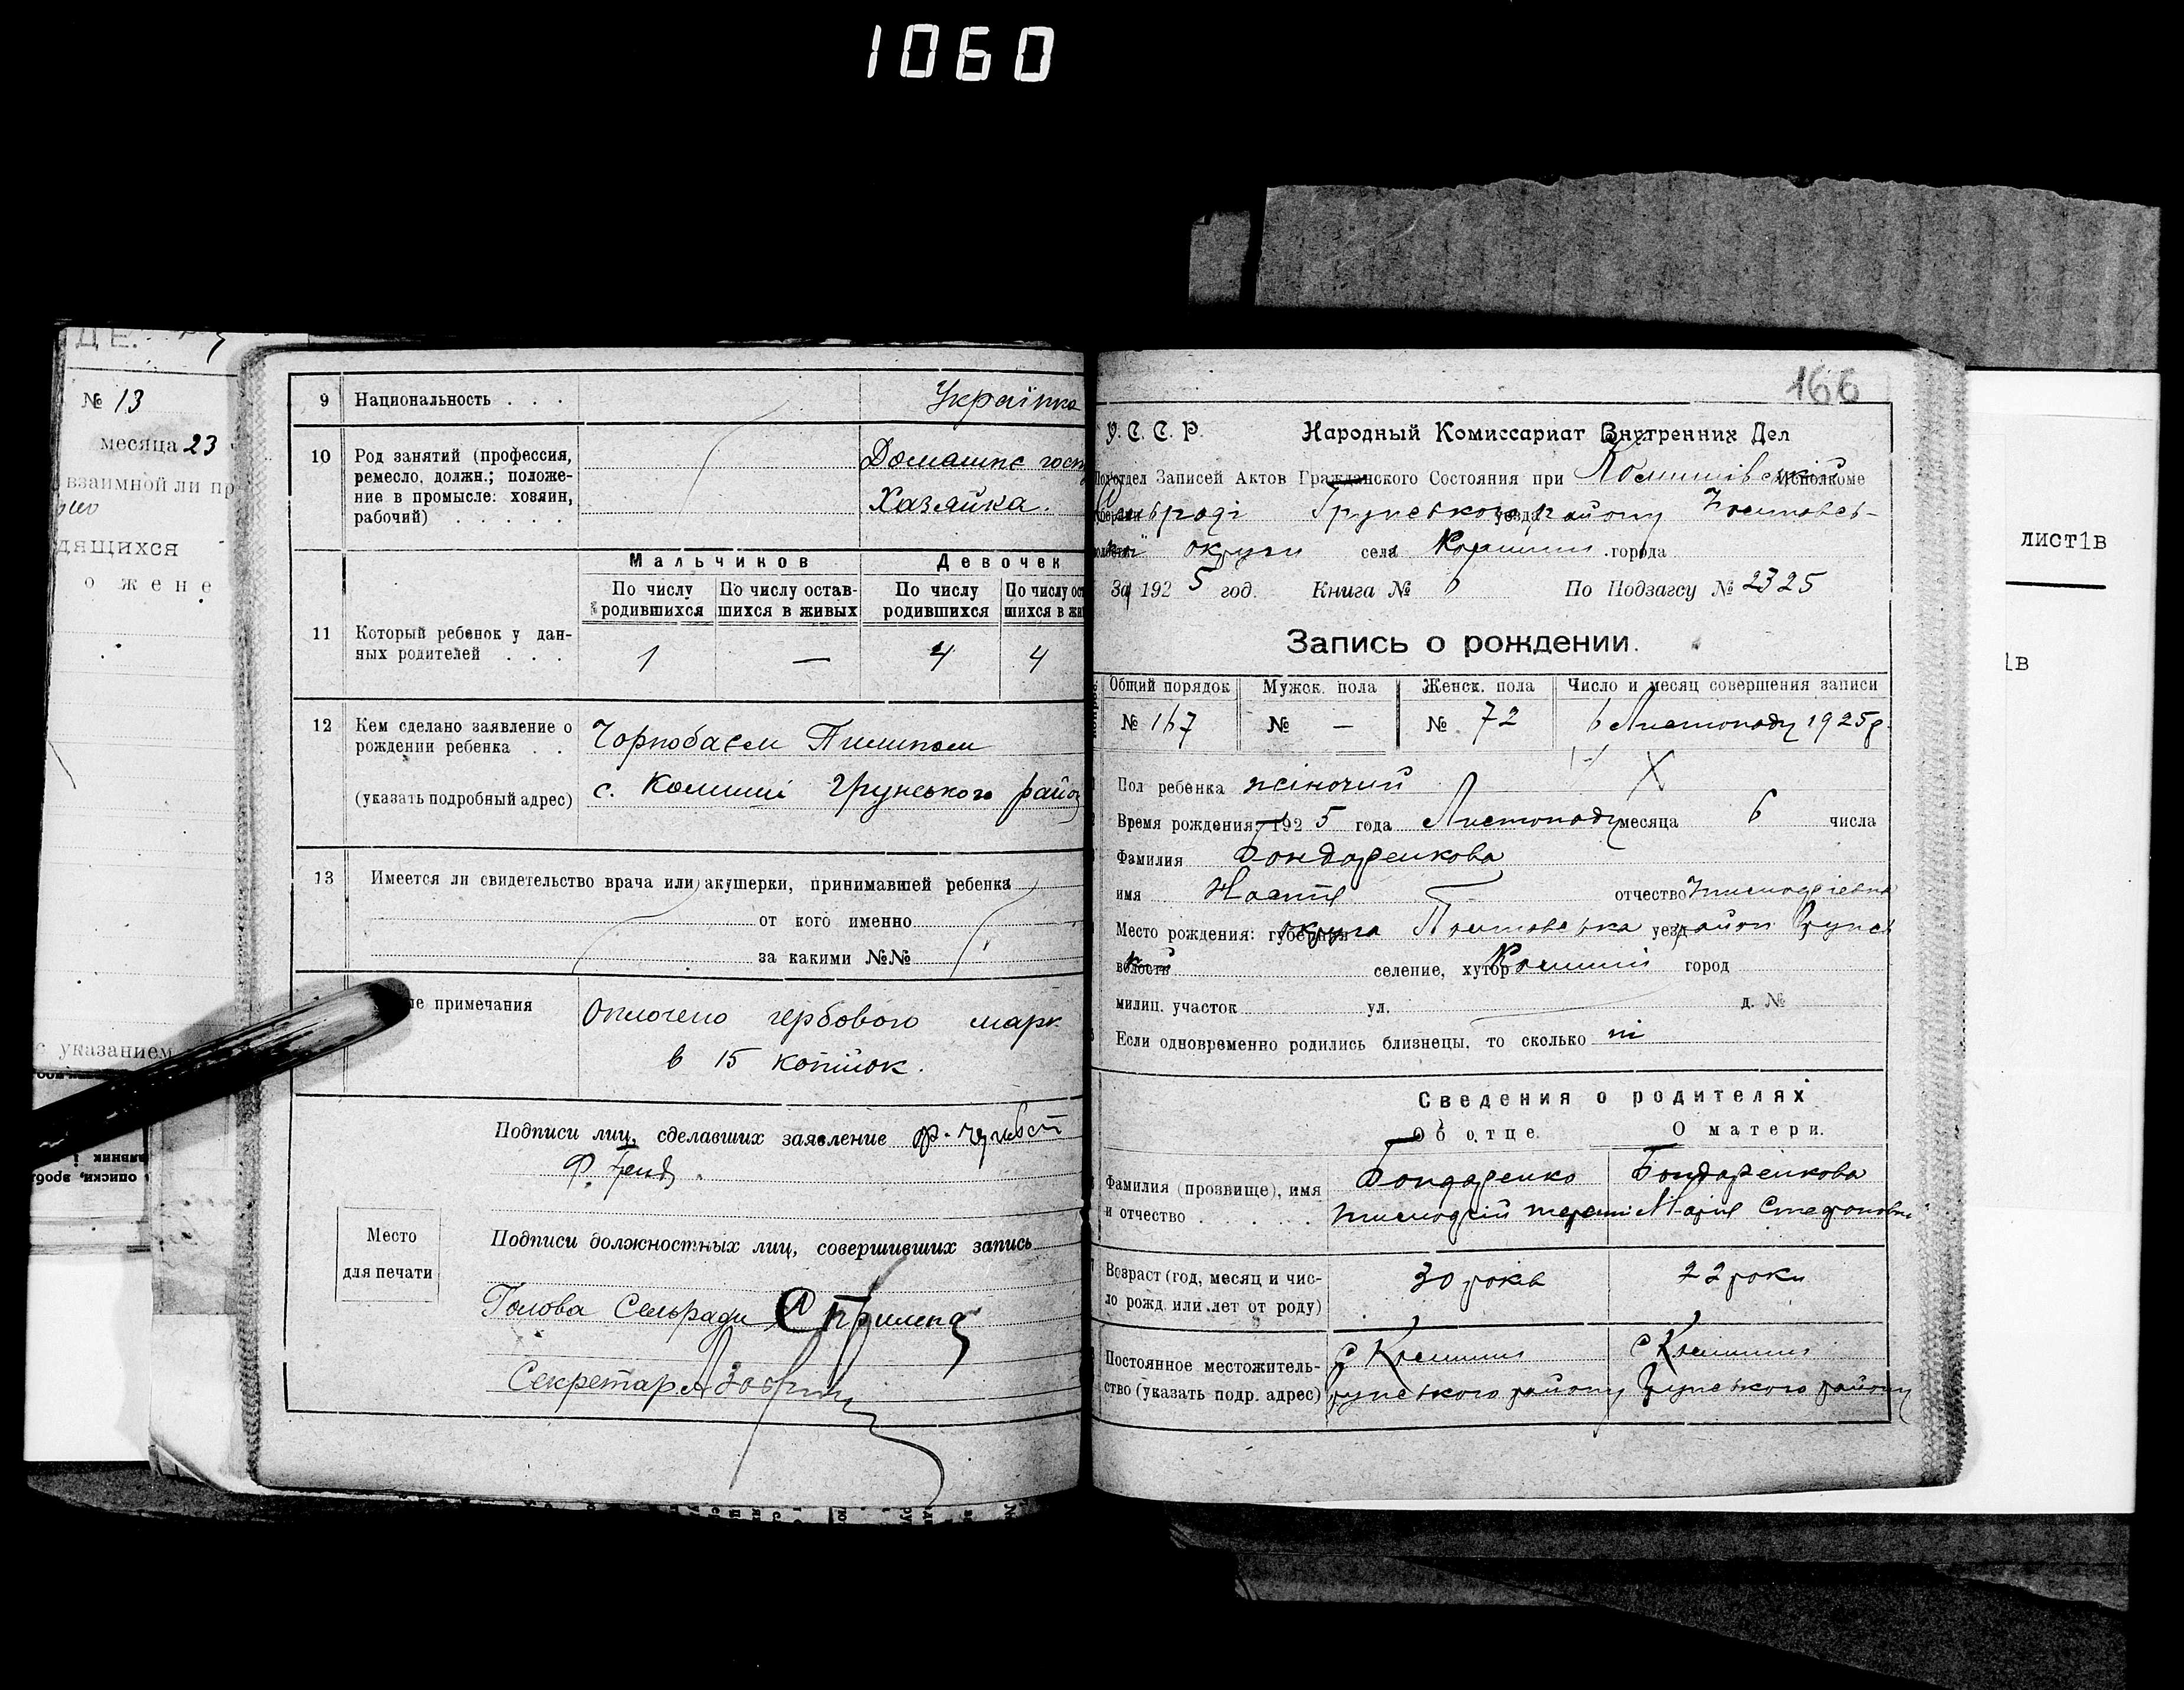 1060
№ 13
месяца 23
взаимной ли пр
дящихся
о жене
с указанием
9 Национальность . . . Українка
10 Род занятий (профессия, ремесло, должн.; положение в промысле: хозяин, рабочий) . . . . .
Домашнє госп
Хазяйка.
Мальчиков Девочек
По числу родившихся По числу оставшихся в живых По числу родившихся По числу ост шихся в жи
11 Который ребенок у данных родителей . . . 1 — 4 4
12 Кем сделано заявление о рождении ребенка . . Чорнобаєм Пилипом
(указать подробный адрес) с. Комиші Грунського райо
13 Имеется ли свидетельство врача или акушерки, принимавшей ребенка
от кого именно
за какими №№
примечания Оплочено гербовою марк
в 15 копійок.
Подписи лиц, сделавших заявление
Подписи должностных лиц, совершивших запись
Место для печати
Голова Сельради
Секретар
166
У. С. С. Р. Народный Комиссариат Внутренних Дел
Подотдел Записей Актов Гражданского Состояния при Комишівській исполкоме
Сельраді Грунського уезда району
округи села Комиші города
За 1925 год. Книга № По Подзагсу № 2325
Запись о рождении.
Общий порядок Мужск. пола Женск. пола Число и месяц совершения записи
№ 167 № — № 72 6 Листопаду 1925 р.
Пол ребенка жіночий
Время рождения: 1925 года Листопаду месяца 6 числа
Фамилия Бондаренкова
имя Настя отчество
Место рождения: губерния округа уезд район Грунсь
волость кий селение, хутор Комиші город
милиц. участок ул. д. №
Если одновременно родились близнецы, то сколько ні
Сведения о родителях
Об отце. О матери.
Фамилия (прозвище), имя и отчество . . . . . .
Бондаренко Бондаренкова
Марія Стефановна
Возраст (год, месяц и число рожд. или лет от роду) 30 років 22 роки
Постоянное местожительство (указать подр. адрес)
с Комиші с Комиші
Грунського району Грунського району
лист1в
1в